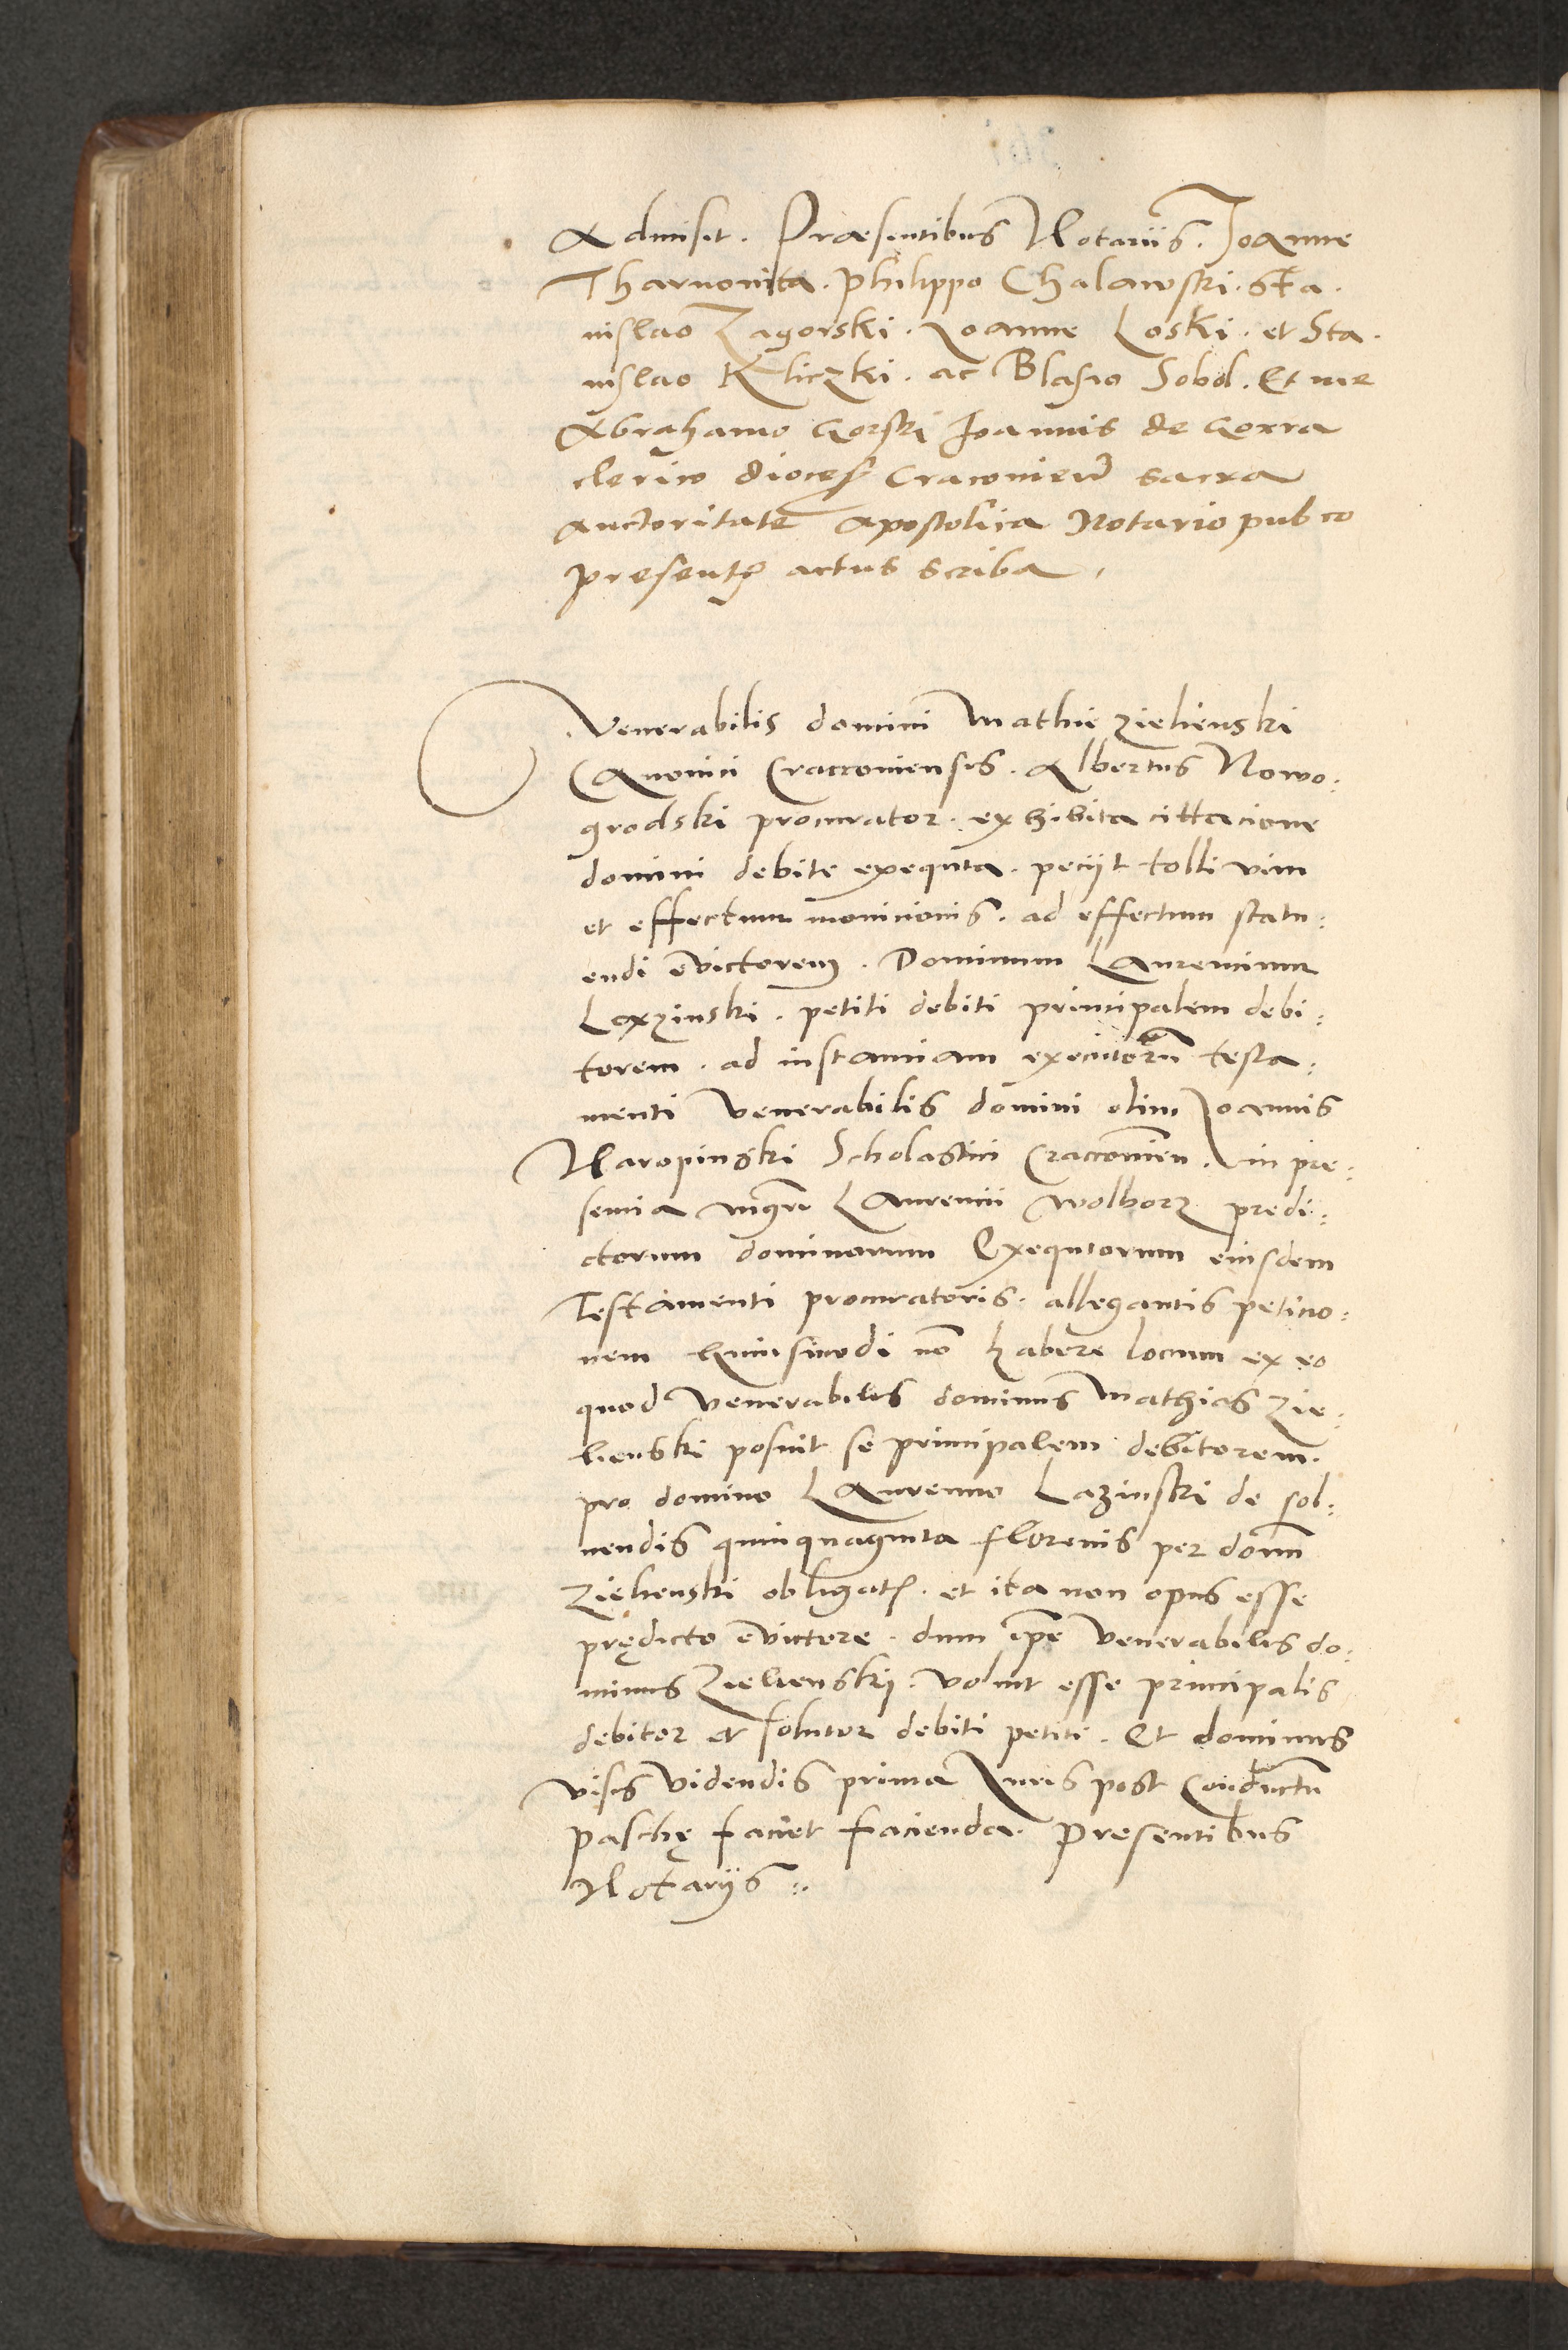 Admisit. Praesentibus Notariis. Joanne
Tharnovita. Philippo Chalawski. Sta.
nislao Zagorski. Joanne Loski. et Sta.
nislao Kliczki. ac Blasio Sobol. Et me
Abrahamo Gorski Joannis de Gorra
clerico dioces Cracovien sacra
auctoritate apostolica Notario pubco
presentis actus scriba.
Venerabilis domini Mathie Zielienski
Canonici Cracoviensis. Albertus Nowo:
grodski procurator. exhibita cittacione
domini debite exequta. peciit tolli vim
et effectum monicionis. ad effectum statu:
endi evictorem. Dominum Laurencium
Lazinski. petiti debiti principalem debi:
torem. ad instanciam executorum testa:
menti venerabilis domini olim Joannis
Naropinski Scholastici Cracovien. in pre:
sencia mgri Laurencii Wolborz predi:
ctorum dominorum Exequtorum eiusdem
Testamenti procuratoris. allegantis peticio:
nem huiusmodi no habere locum ex eo
quod venerabilis dominus Mathias Zie:
lienski posuit se principalem debitorem.
pro domino Laurencio Lazinski de sol:
vendis quinquaginta florenis per domm
Zielienski obligat. et ita non opus esse
prędicto evictore. dum ipe venerabilis do:
minus Zielienski. voluit esse principalis
debitor et solutor debiti petiti. Et dominus
visis videndis prima Juris post Conductum
paschę faciet facienda. Presentibus
Notariis.